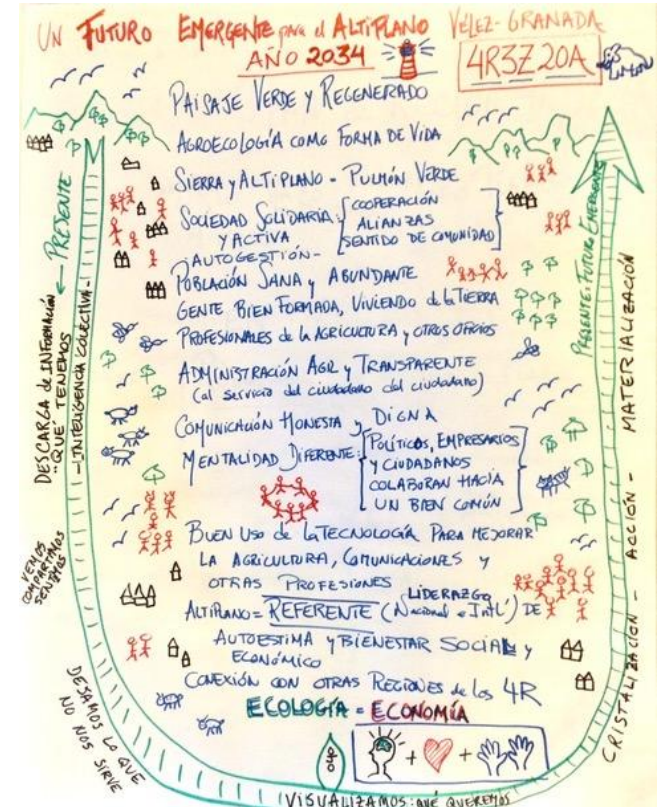 UN FUTURO EMERGENTE para el ALTIPLANO VÉLEZ-GRANADA
AÑO 2034
4R3Z20A
PAISAJE VERDE Y REGENERADO
AGROECOLOGÍA COMO FORMA DE VIDA
SIERRA Y ALTIPLANO = PULMÓN VERDE
SOCIEDAD SOLIDARIA: Y ACTIVA
COOPERACIÓN
ALIANZAS
SENTIDO DE COMUNIDAD
-AUTOGESTIÓN-
POBLACIÓN SANA Y ABUNDANTE
GENTE BIEN FORMADA, VIVIENDO de la TIERRA
PROFESIONALES de la AGRICULTURA y OTROS OFICIOS
ADMINISTRACIÓN AGIL y TRANSPARENTE
(al servicio del ciudadano del ciudadano)
COMUNICACIÓN HONESTA y DIGNA
MENTALIDAD DIFERENTE:
POLÍTICOS, EMPRESARIOS
Y CIUDADANOS
COLABORAN HACIA
UN BIEN COMÚN
BUEN USO de la TECNOLOGÍA PARA MEJORAR
LA AGRICULTURA, COMUNICACIONES y
OTRAS PROFESIONES
ALTIPLANO = REFERENTE (Nacional e Intl') DE
LIDERAZGO
AUTOESTIMA y BIENESTAR SOCIAL y
ECONÓMICO
CONEXIÓN CON OTRAS REGIONES de los 4R
ECOLOGÍA = ECONOMÍA
← PRESENTE
DESCARGA de INFORMACIÓN
"QUÉ" TENEMOS
-INTELIGENCIA COLECTIVA-
VEMOS
COMPARTIMOS
SENTIMOS
DEJAMOS LO QUE
NO NOS SIRVE
VISUALIZAMOS: QUÉ QUEREMOS
CRISTALIZACIÓN - ACCIÓN - MATERIALIZACIÓN
PRESENTE: FUTURO EMERGENTE